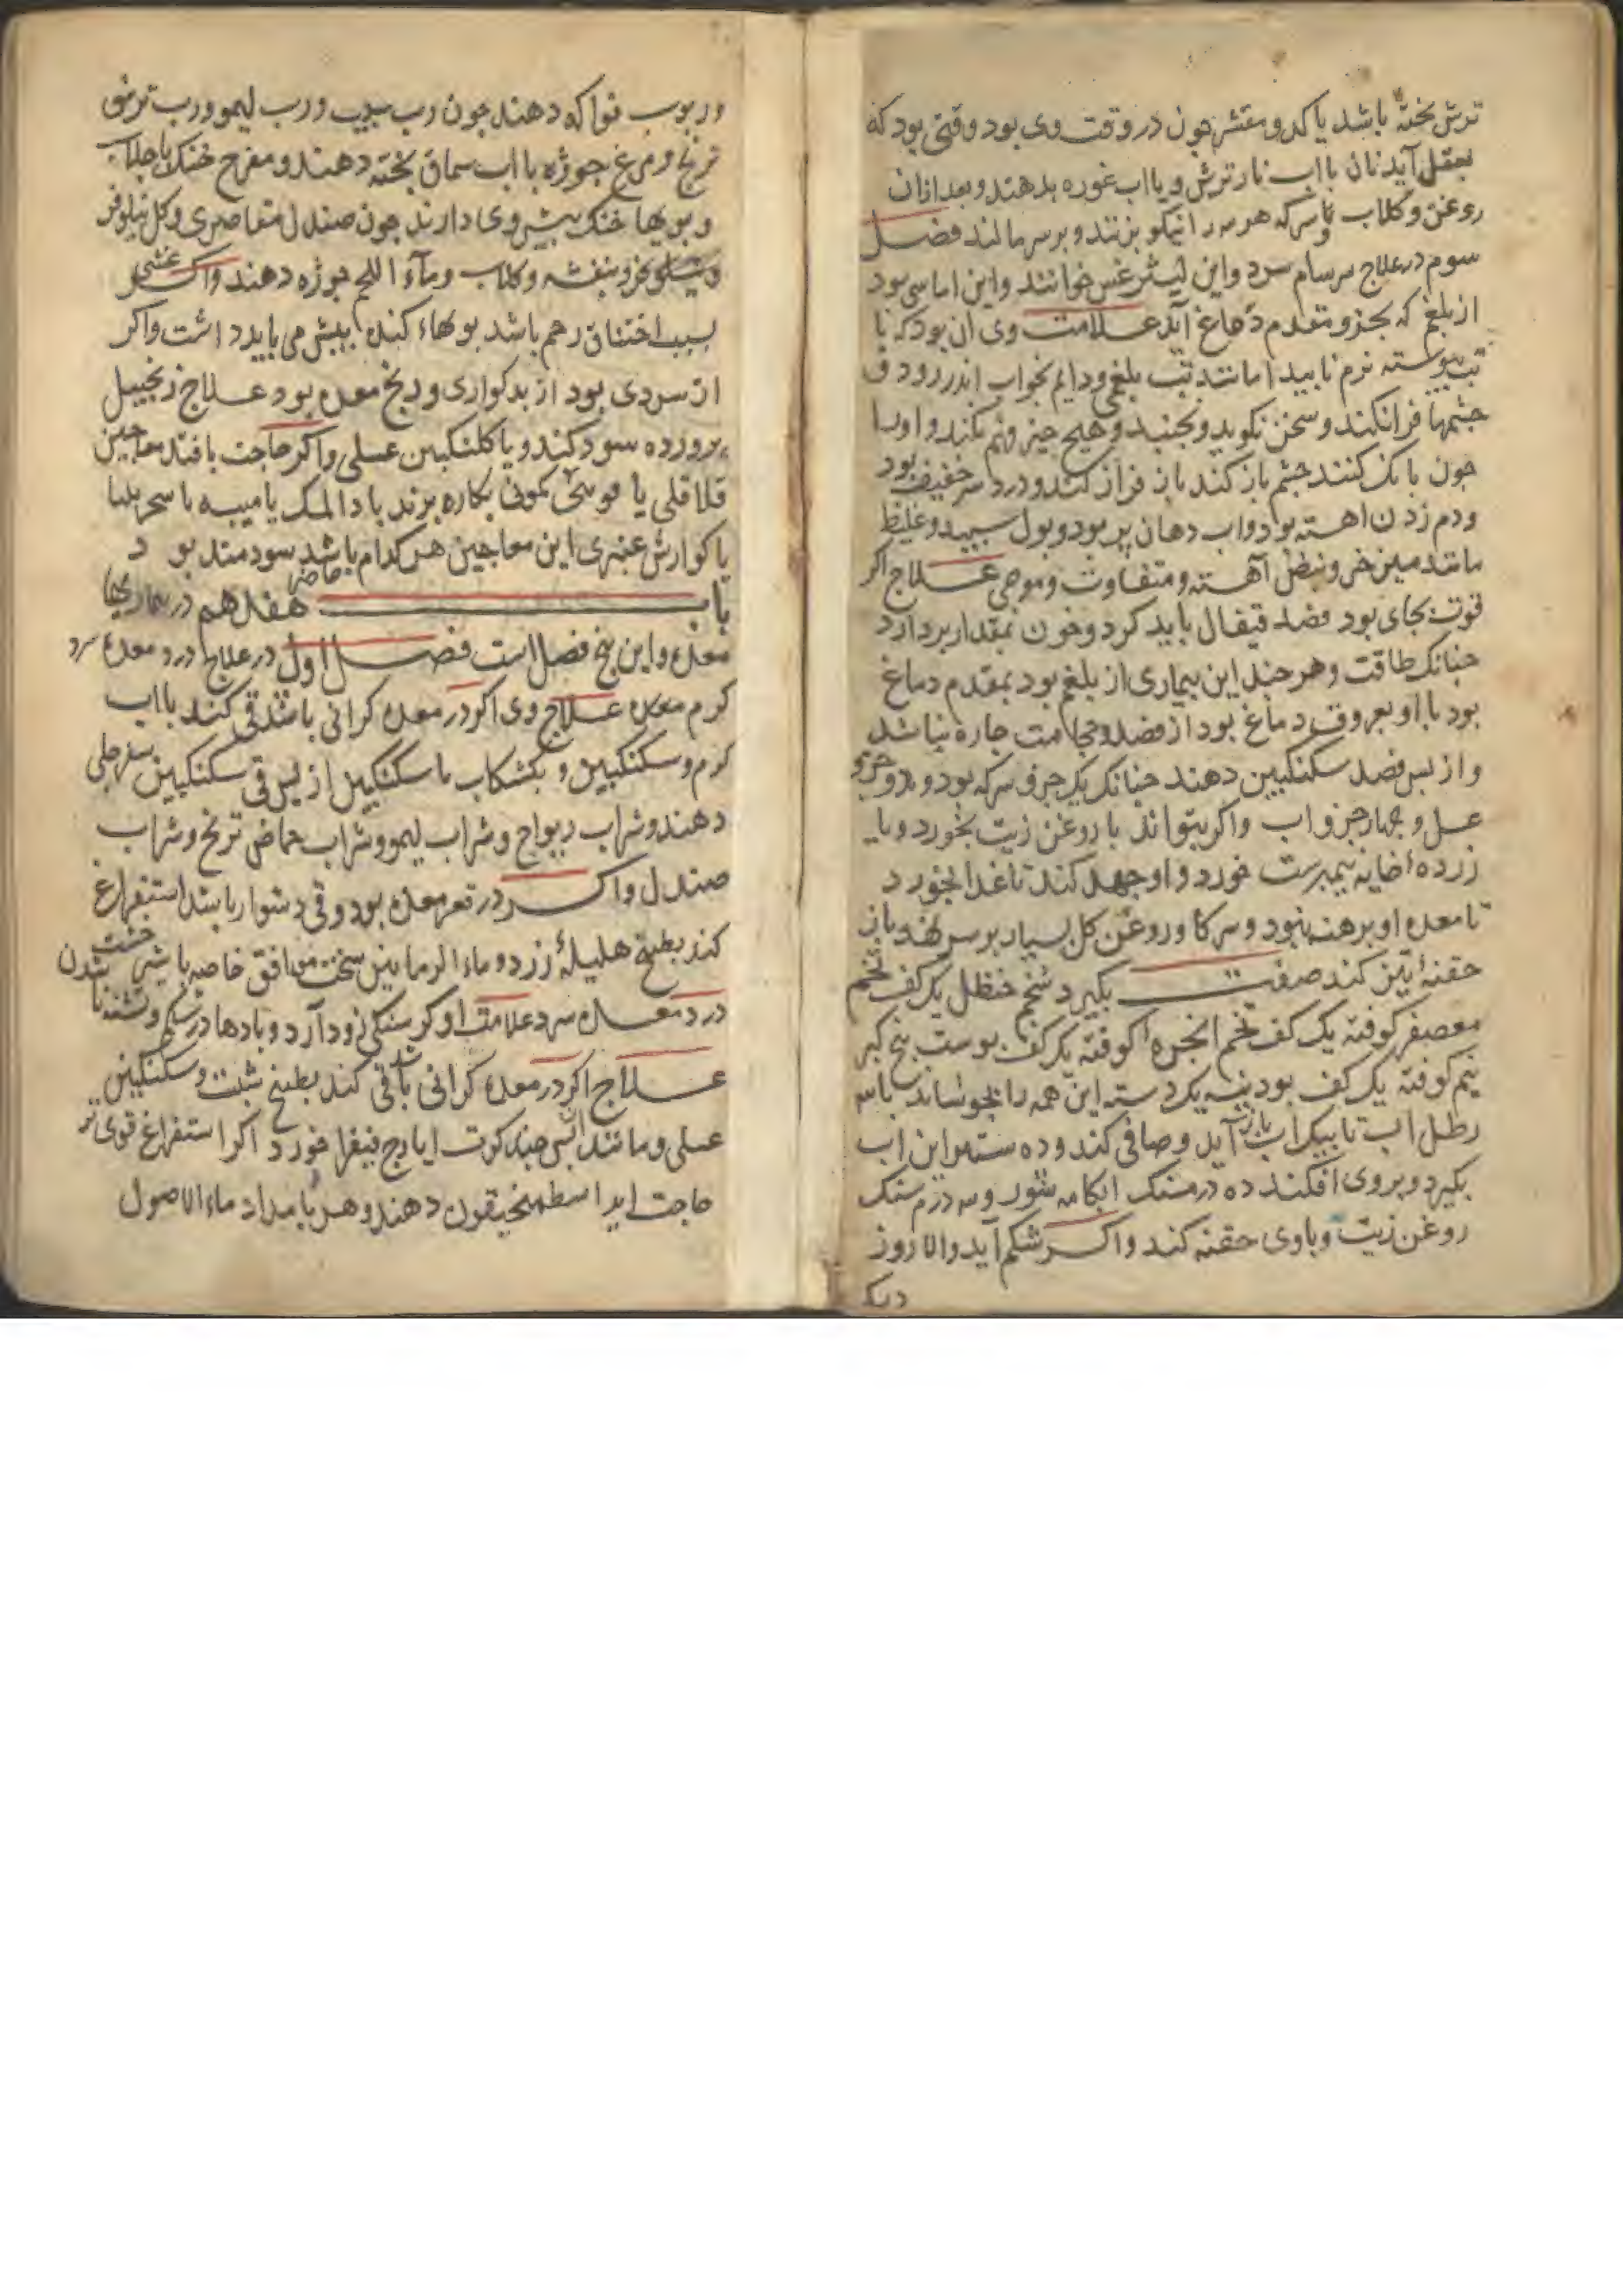 ترش بخته باشد یا کدو مقشر چون در وقت وی بود وقتی بود که
بعقل آید نان با اب نار ترش و یا اب غوره بدهند و بعد ازان
روغن و کلاب و سرکه هر سه را نیکو بزنند و بر سر مالند فصل
سوم در علاج سرسام سرد و این لیثرغس خوانند و این اماسی بود
از بلغم که بجزو مقدم دماغ آید علامت وی ان بود که با
تب پیوسته نرم نابید اما مانند تب بلغمی و دایم بخواب اندر رود و
جشمها فرا نکند و سخن نکوید و بجنبد و هیچ جیز فهم نکند و اورا
جون بانک کنند جشم باز کند باز فراز کند و درد سر خفیف بود
و دم زدن اهسته بود و اب دهان پر بود و بول سبید و غلیظ
مانند میز خر و نبض آهسته و متفاوت و موجی علاج اکر
قوت بجای بود فصد قیفال باید کرد و خون بمقدار بردارد
جنانک طاقت و هر جند این بیماری از بلغم بود بمقدم دماغ
بود با او بعروق دماغ بود از فصد و حجامت جاره نباشد
و از بس فصد سکنکبین دهند جنانک یک جزو سرکه بود و دو جزو
عسل و جهار جزو اب واکر بتواند با روغن زیت بخورد و یا
زرده خایه نیمبرست خورد و او جهد کند تا غذا بخورد
تا معده او برهنه نبود و سرکا و روغن کل بسیار بر سر نهد باز
حقنه تیز کند صفت بکیرد شحم حنظل یک کف تخم
معصفر کوفته یک کف تخم انجره کوفته یک کف بوست بیخ کبر
نیم کوفته یک کف بودینه یک دسته این همه را بجوشاند با سه
رطل اب تا بیک اب باز آید و صافی کند و ده ستیر این اب
بکیرد و بروی افکند ده درمسنک ابکامه شور و سه درم سنک
روغن زیت و باوی حقنه کند واکر شکم آید والا روز
دیکر
و ربوب فواکه دهند جون رب سیب و رب لیمو و رب ترشی
ترنج و مرغ جوژه با اب سماق بخته دهند و مفرح خنک با جلاب
و بویها خنک بیش وی دارند جون صندل مقاصری و کل نیلوفر
و بنفشه و کلاب و ماء اللحم جوژه دهند واکر غشی
بسبب اختناق رحم باشد بویهاء کنده بیش می باید داشت واکر
از سردی بود از بدکواری و رنج معده بود علاج زنجبیل
برورده سود کند و یا کلنکبین عسلی واکر حاجت یافتد معاجین
قلاقلی یا کمونی بکاره برند یا دا المسک یا میبه یا سجرینیا
یا کوارش عنبری این معاجین هر کدام حاضر باشد سودمند بود
باب هفدهم در بیماریها
معده و این بنج فصل است فصل اول در علاج درد معده سرد
کرم معده علاج وی اکر در معده کرانی باشد قی کند با اب
کرم و سکنکبین و بکشکاب با سکنکبین از بس قی سکنکبین سفرجلی
دهند و شراب ریواج و شراب لیمو و شراب حماض ترنج و شراب
صندل واکر در قعر معده بود و قی دشوار باشد استفراغ
کند بطبیخ هلیله زرد و ماء الرمانین سخت موافق خاصه با شیر خشت
درد معده سرد علامت او کرسنکی زود آرد و بادها در شکم و تشنه نا شدن
علاج اکر در معده کرانی باشد قی کند بطبیخ شبت و سکنکبین
عسلی و مانند ان بس جند کرت ایارج فیقرا خورد اکر استفراغ قوی تر
حاجت اید اسطمخیقون دهند و هر بامداد ماء الاصول